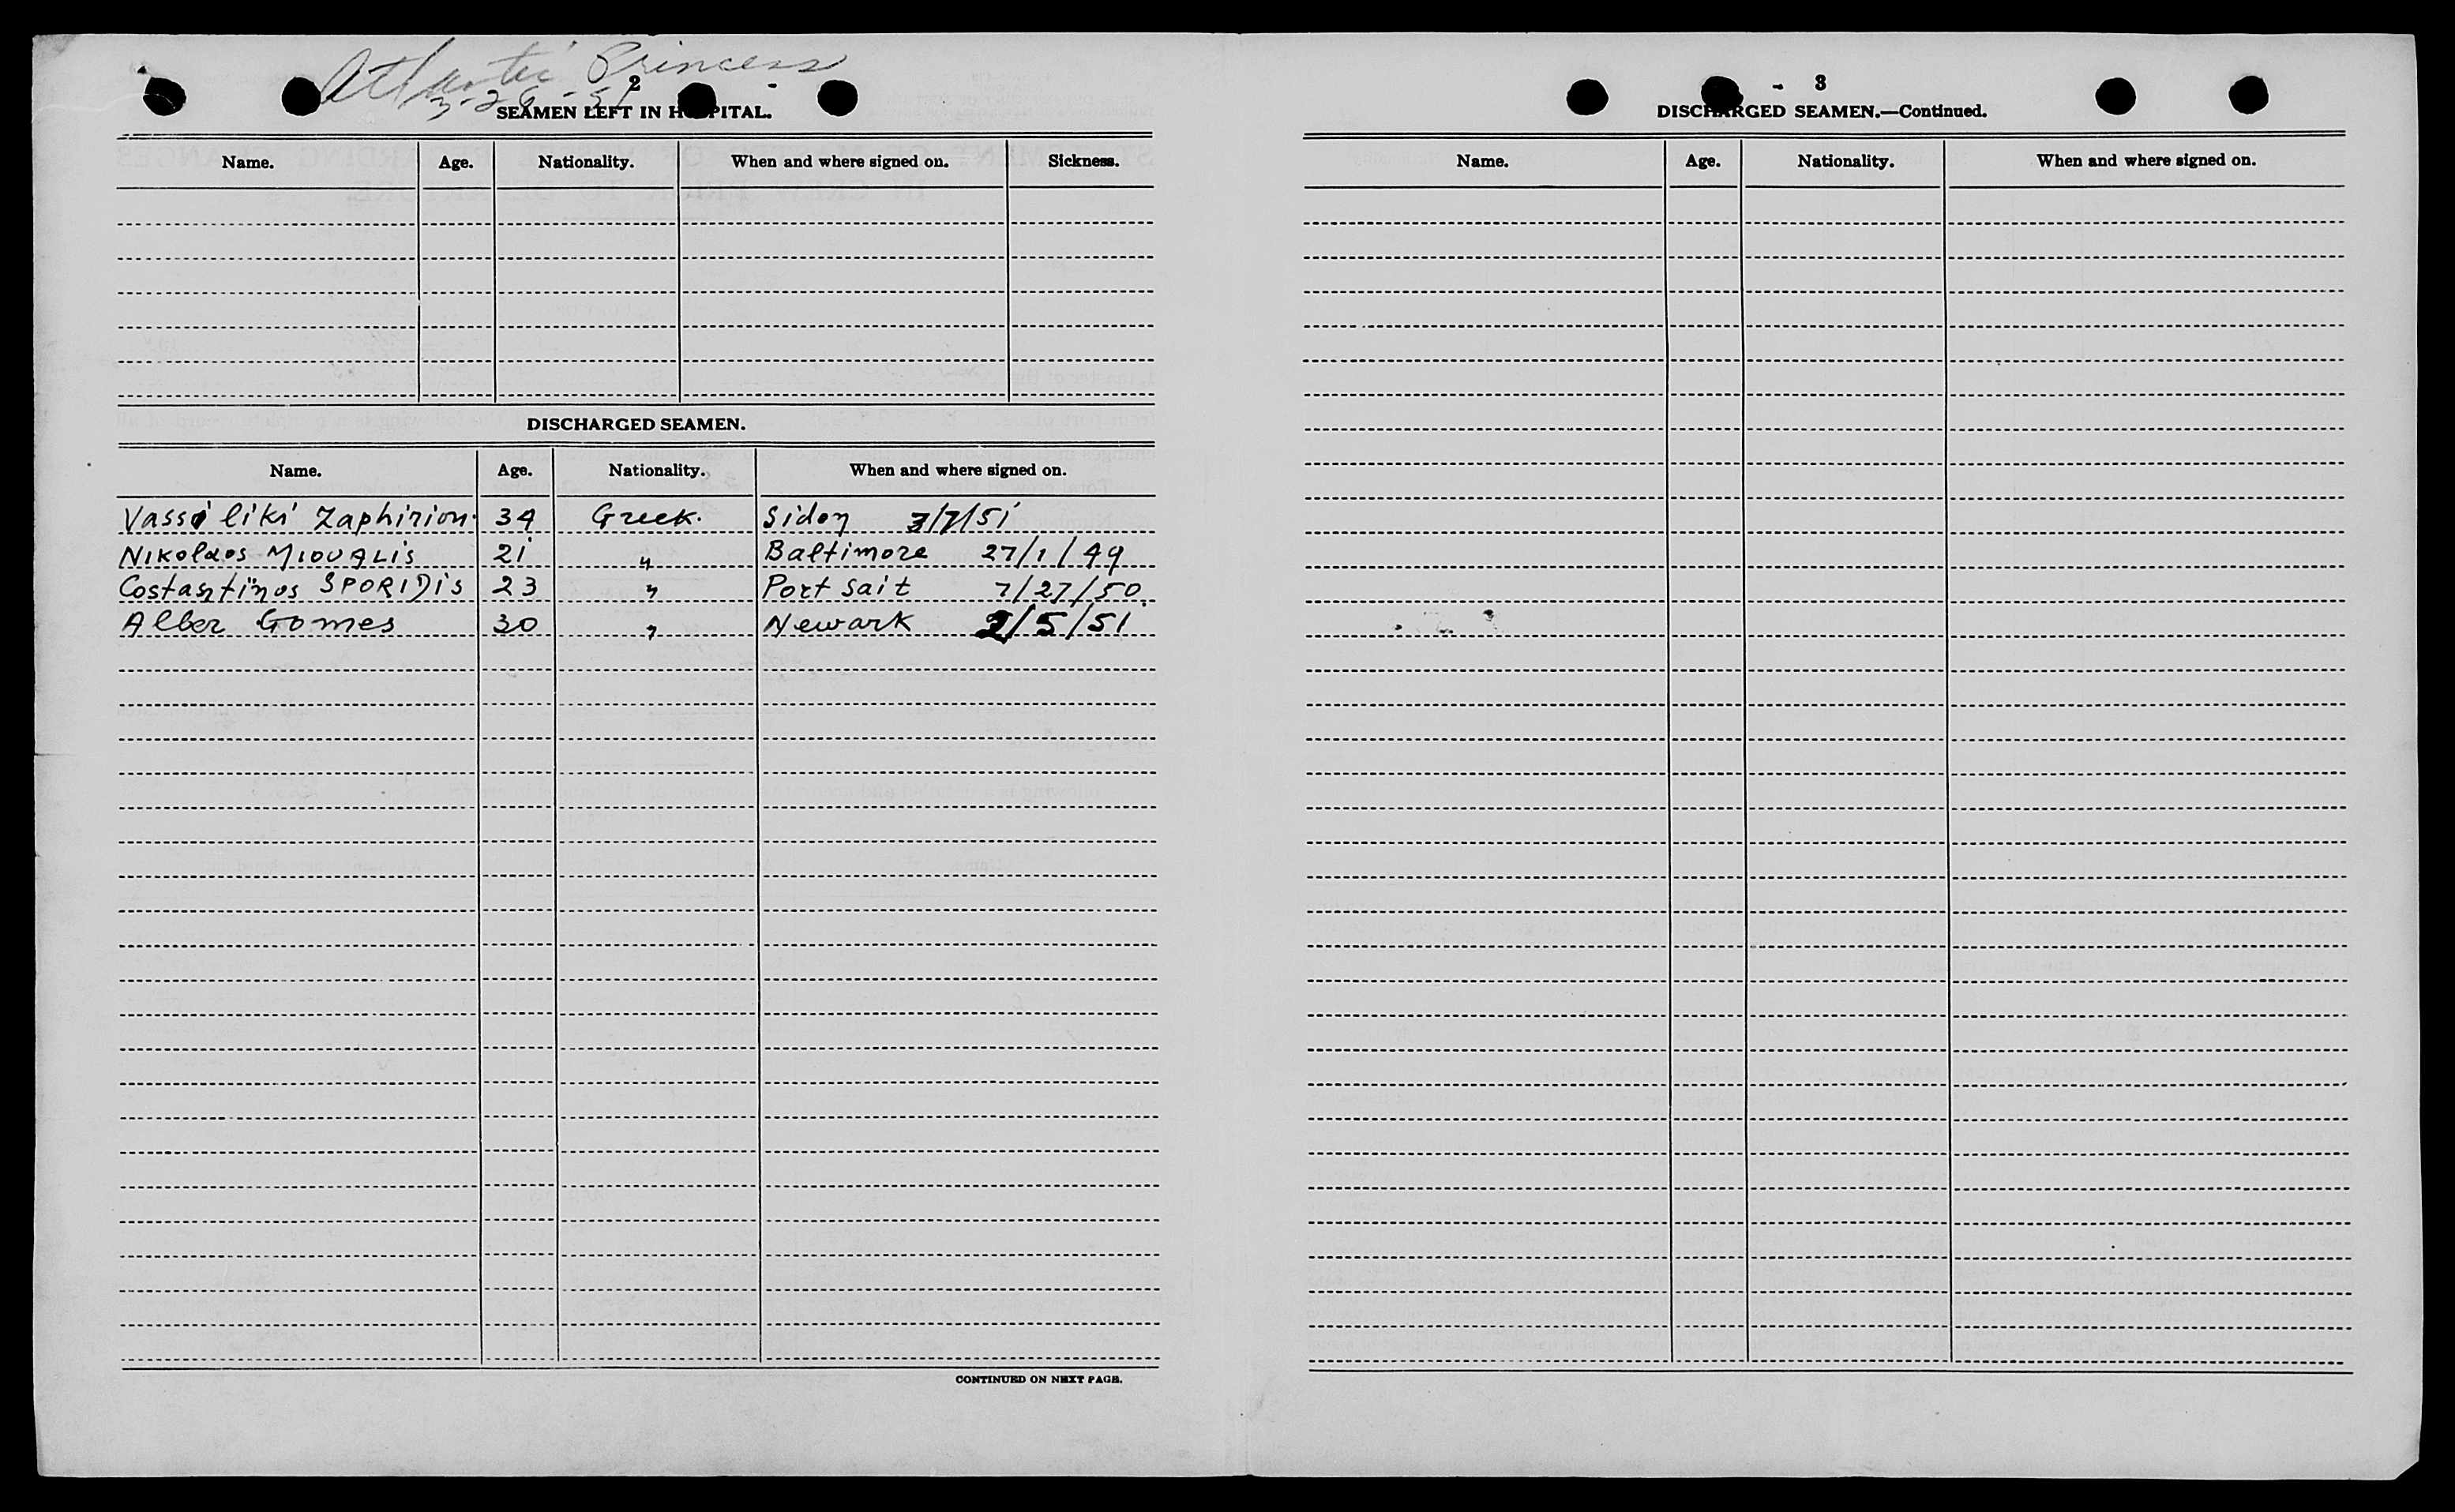 Atlantic Princess
3-26-51
2
SEAMEN LEFT IN HOSPITAL.
Name. Age. Nationality. When and where signed on. Sickness.
DISCHARGED SEAMEN.
Name. Age. Nationality. When and where signed on.
Vassiliki Zaphiriou. 34 Greek. Sidon 3/7/51
Nikolaos MIOUALIS 21 " Baltimore 27/1/49
Costantinos SPORIDIS 23 " Port Sait 7/27/50
Alber Gomes 30 " Newark 2/5/51
CONTINUED ON NEXT PAGE.
- 3
DISCHARGED SEAMEN.—Continued.
Name. Age. Nationality. When and where signed on.